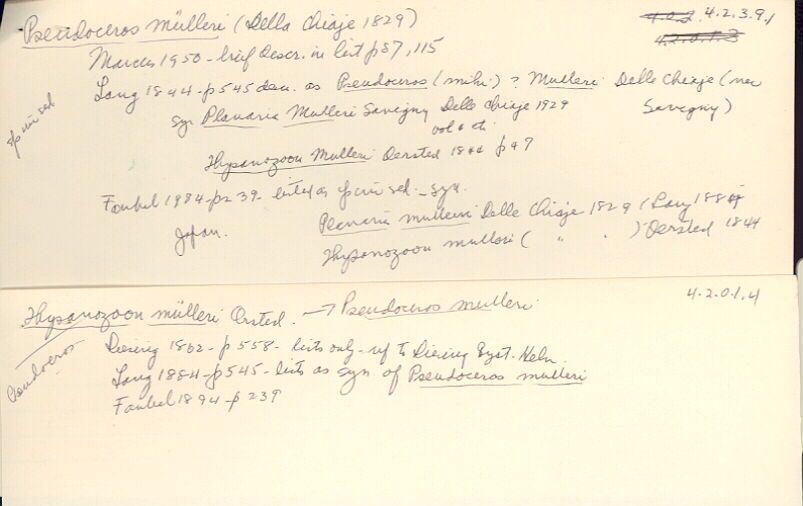 Pseudoceros mülleri (Della Chiaje 1829) 4.2.3.9.1
4.2.0.1.3
Marcus 1950 - brief descr. in list p 87, 115
Lang 1844 - p 545 as Pseudoceros (mihi) ? Mulleri Delle Chiaje (nec Savigny)
sp in sed
Syn Planaria Mulleri Savigny Delle Chiaje 1829
vol 6
Thysanozoon Mulleri Oersted 1844 p 47
Faubel 1984 - p 239 - listed as sp in sed. - syn.
Japan.
Planaria mulleri Delle Chiaje 1829 (Lang 1884
Thysanozoon mulleri ( " . ) Oersted 1844
4.2.0.1.4
Thysanozoon mülleri Orsted. → Pseudoceros mulleri
Pseudoceros
Diesing 1862 - p 558 - lists only - ref to Diesing Syst. Helm.
Lang 1884 - p 545 - lists as syn of Pseudoceros mulleri
Faubel 1894 - p 239